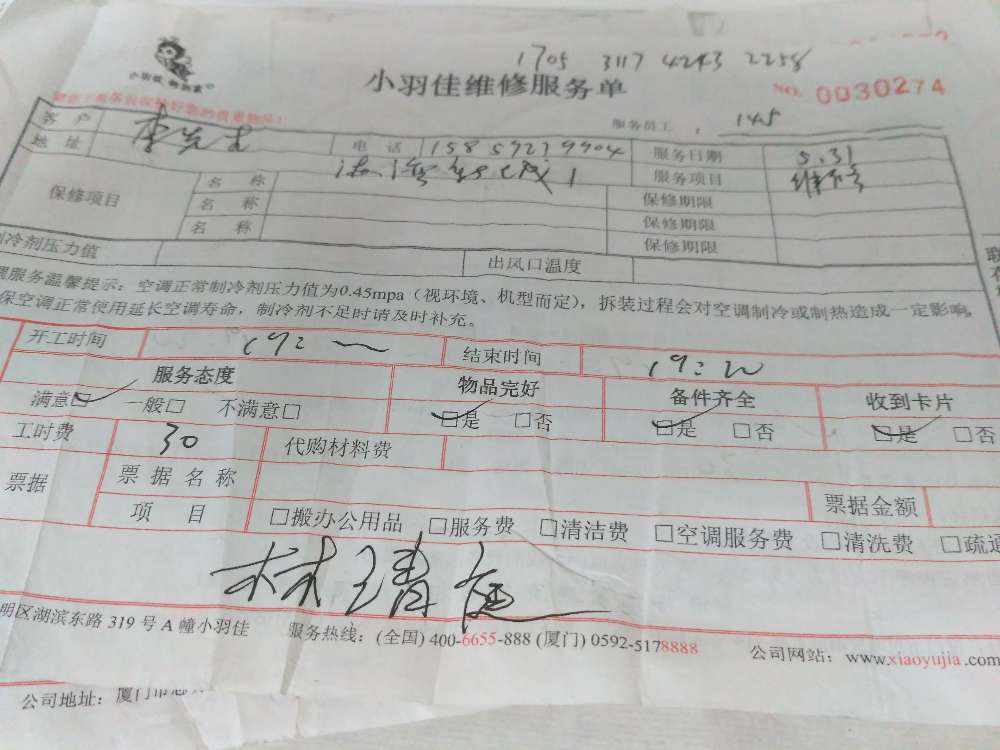 1705 3117 4243 2258
小羽佳维修服务单
NO. 0030274
服务员工： 145
客户 李先生 电话 15859279904 服务日期 5.31
地址 服务项目 维修
保修项目 名称 保修期限
名称 保修期限
名称 保修期限
制冷剂压力值 出风口温度
服务温馨提示：空调正常制冷剂压力值为0.45mpa（视环境、机型而定），拆装过程会对空调制冷或制热造成一定影响，
保空调正常使用延长空调寿命，制冷剂不足时请及时补充。
开工时间 19: 结束时间 19:20
服务态度 物品完好 备件齐全 收到卡片
满意□ 一般□ 不满意□ □是 □否 □是 □否 □是 □否
工时费 30 代购材料费
票据 票据名称 票据金额
项目 □搬办公用品 □服务费 □清洁费 □空调服务费 □清洗费 □疏通
明区湖滨东路 319 号 A 幢小羽佳 服务热线：(全国) 400-6655-888 (厦门) 0592-5178888 公司网站：www.xiaoyujia.com
公司地址：厦门市思